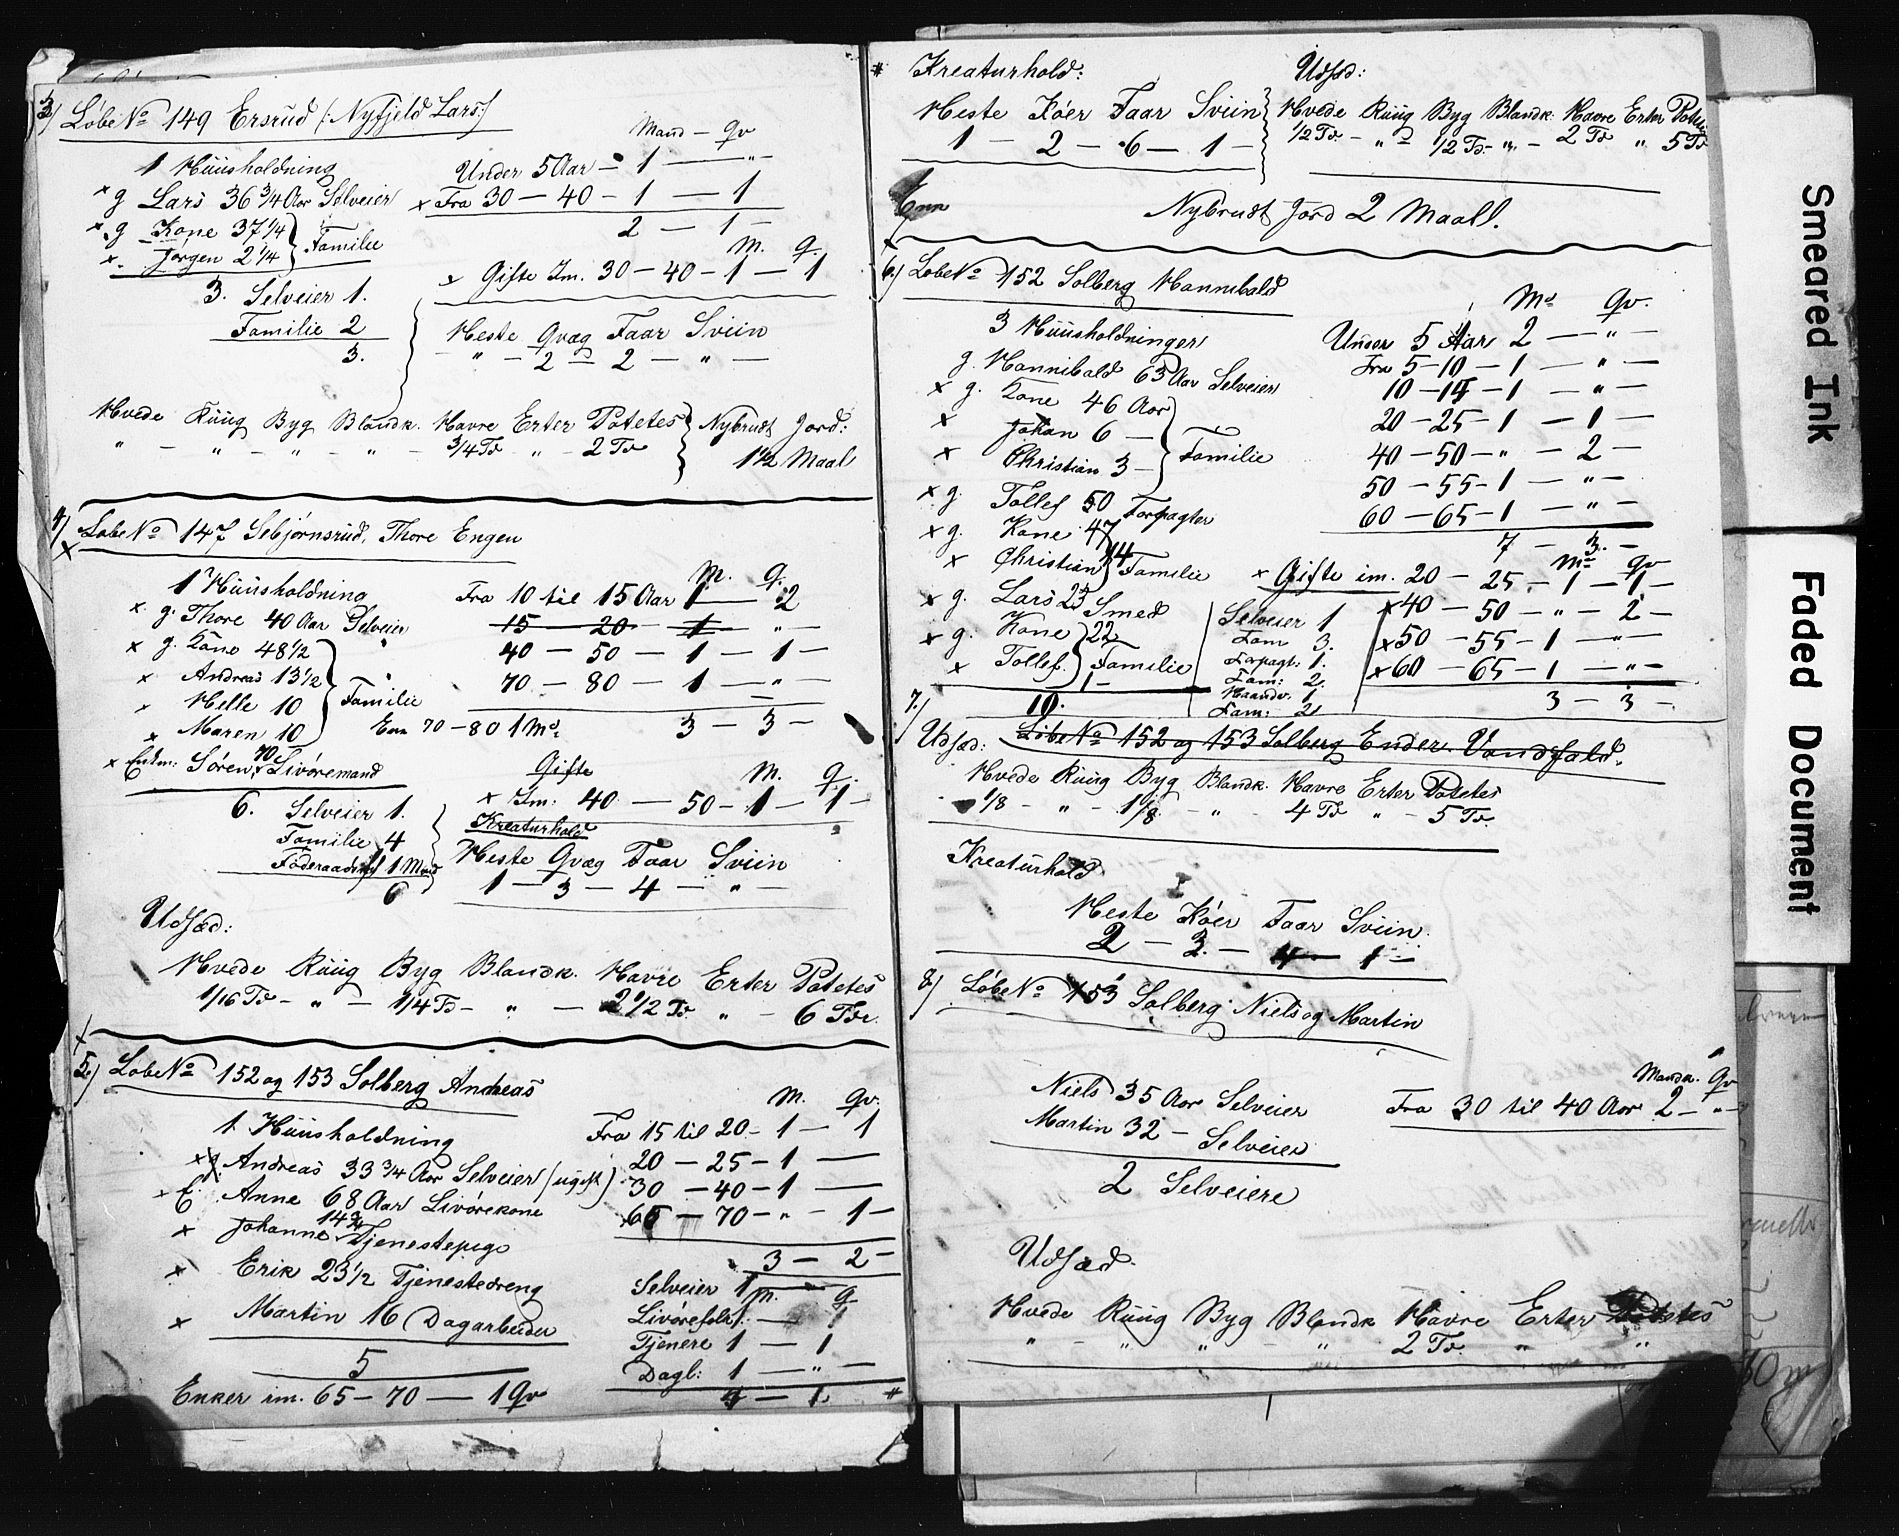 3) Løbe No 149 Ersrud /: Nyfjeld Lars :/
Mand – Qv
1 Huusholdning
Under 5 Aar – 1 – "
x g Lars 36 3/4 Aar Selveier
x Fra 30 – 40 – 1 – 1
x g Kone 37 1/4 } Familie
2 – 1 –
x Jørgen 2 1/4
M. Q.
x Gifte Im. 30 – 40 – 1 – 1
3. Selveier 1.
Familie 2
3.
Heste Qvæg Faar Sviin
" – 2 – 2 – " –
Hvede Ruug Byg Blandk. Havre Erter Potetes } Nybrudt Jord:
" – " – " – " – 3/4 Tø " – 2 Tø 1 1/2 Maal
4) Løbe No 147 Sebjørnsrud, Thore Engen
x
M. Q.
1 Huusholdning
Fra 10 til 15 Aar 1 – 2
x g. Thore 40 Aar Selveier
15 – 20 – 1 – " –
x g. Kone 48 1/2
40 – 50 – 1 – 1 –
x Andreas 13 1/2
70 – 80 – 1 – " –
x Helle 10 } Familie
x Maren 10
Enk 70 – 80 1 Md
3 – 3 –
x Enkem: Søren 70 Livøremand
Gifte M. Q.
x Im: 40 – 50 – 1 – 1 –
6. Selveier 1.
Familie 4
Føderaadsf 1 Mand
6
Kreaturhold
Heste Qvæg Faar Sviin
1 – 3 – 4 – " –
Udsæd:
Hvede Ruug Byg Blandk. Havre Erter Potetes
1/16 Tø – " – 1/4 Tø – " – 2 1/2 Tø " – 6 Tør.
x
5.) Løbe No 152 og 153 Solberg Andreas
M. Qv.
1. Huusholdning
Fra 15 til 20 – 1 – 1
x g Andreas 33 3/4 Aar Selveier (ugift)
20 – 25 – 1 –
x E. Anne 68 Aar Livørekone
30 – 40 – 1 –
x Johanne 14 3/4 Tjenestepige
65 – 70 – " – 1 –
3 – 2 –
x Erik 23 1/2 Tjenestedreng
x Martin 16 Dagarbeider
5
Selveier 1 M. Q
Livørefolk – 1
Tjenere 1 – 1
Dagl: 1 – " –
Enker im. 65 – 70 – 1 Qv
#
# Kreaturhold: Udsæd:
Heste Køer Faar Sviin } Hvede Ruug Byg Blandk: Havre Erter Potetes
1 – 2 – 6 – 1 – 1/2 Tø – " – 1/2 Tø – " – 2 Tø " 5 Tø
Nybrudt Jord 2 Maal.
x
6.) Løbe No 152 Solberg Hannibald
Md Qv.
3 Huusholdninger
Under 5 Aar 2 – " –
g. Hannibald 63 Aar Selveier
Fra 5 – 10 – 1 – " –
x g. Kone 46 Aar
10 – 15 – 1 – " –
x Johan 6 –
20 – 25 – 1 – 1 –
x Christian 3 – } Familie
40 – 50 – " – 2 –
x g. Tollef 50 Forpagter
50 – 55 – 1 – " –
x g. Kone 47
60 – 65 – 1 – " –
x Christian 14 } Familie
7 – 3. –
Md Qv
x g. Lars 23 Smed
x Gifte im. 20 – 25 – 1 – 1 –
x g. Kone 22
x 40 – 50 – " – 2 –
x Tollef 1 – } Familie
x 50 – 55 – 1 – " –
x 60 – 65 – 1 – " –
10.
3 – 3 –
Selveier 1
Fam 3.
Forpagt: 1.
Fam: 2.
Haandv. 1
Fam: 2
7.)
Løbe No 152 og 153 Solberg Ender Vandfald.
Udsæd:
Hvede Ruug Byg Blandk. Havre Erter Potetes
1/8 – " – 1/8 " – 4 Tø " – 5 Tø.
Kreaturhold
Heste Køer Faar Sviin.
2 – 3 – 4 – 1 –
8.) Løbe No 153 Solberg Niels og Martin
Mandk. Qv
Niels 35 Aar Selveier
Fra 30 til 40 Aar 2 – " –
Martin 32 – Selveier
2 Selveiere
Udsæd.
Hvede Ruug Byg Blandk Havre Erter Potetes
" " " " 2 Tø. " "
Smeared Ink
Faded Document